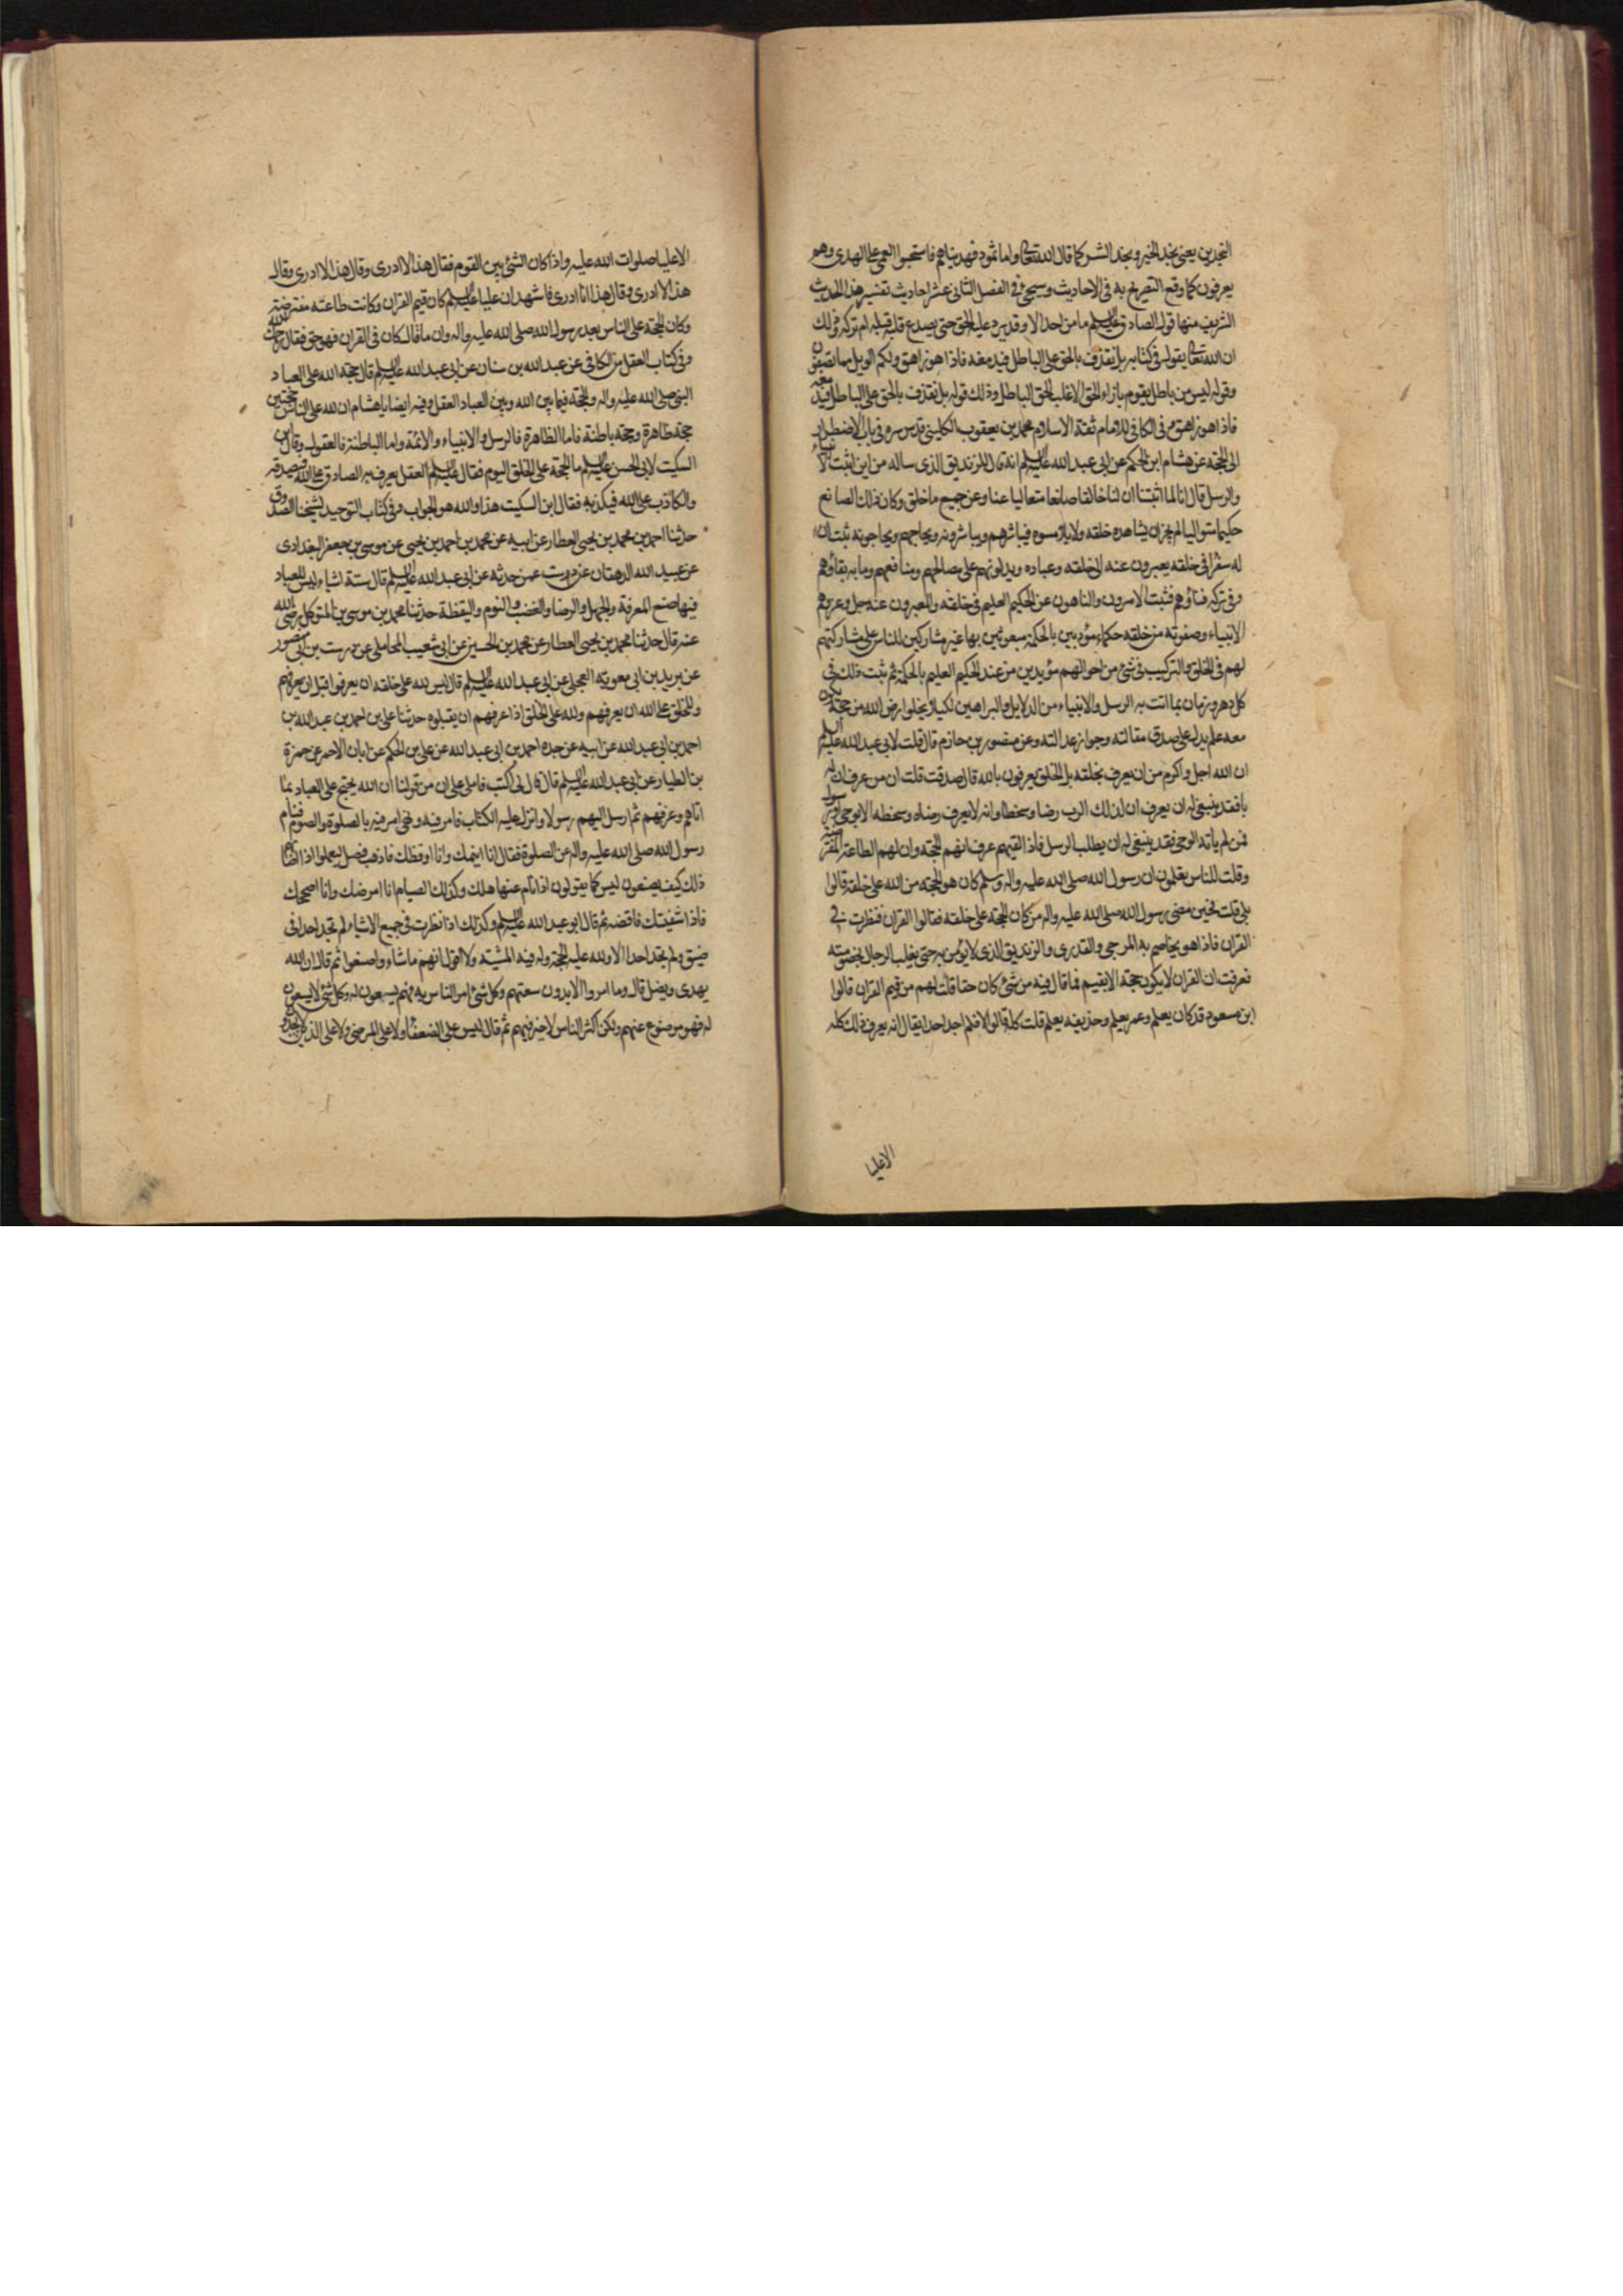 النجدين يعنى نجد الخير ونجد الشر كما قال الله تعالى واما ثمود فهديناهم فاستحبوا العمى على الهدى وهو
يعرفون كما وقع التصريح به فى الاحاديث وسيجئ فى الفصل الثانى عشر احاديث تفسير هذا الحديث
الشريف منها قول الصادق عليه السلم ما من احد الا وقد يرد عليه الحق حتى يصدع قلبه قبله ام تركه وذلك
ان الله تعالى يقول فى كتابه بل نقذف بالحق على الباطل فيدمغه فاذا هو زاهق ولكم الويل مما تصفون
وقوله ليس من باطل يقوم بازاء الحق الا غلب الحق الباطل وذلك قوله بل نقذف بالحق على الباطل فيدمغه
فاذا هو زاهق وفى الكافى للامام ثقة الاسلام محمد بن يعقوب الكلينى قدس سره فى باب الاضطرار
الى الحجة عن هشام ابن الحكم عن ابى عبد الله عليه السلم انه قال للزنديق الذى ساله من اين اثبت الانبياء
والرسل قال انا لما اثبتنا ان لنا خالقا صانعا متعاليا عنا وعن جميع ما خلق وكان ذلك الصانع
حكيما متعاليا لم يجز ان يشاهده خلقه ولا يلامسوه فيباشرهم ويباشرونه ويحاجهم ويحاجونه ثبت ان
له سفراء فى خلقه يعبرون عنه الى خلقه وعباده ويدلونهم على مصالحهم ومنافعهم وما به بقاؤهم
وفى تركه فناؤهم فثبت الامرون والناهون عن الحكيم العليم فى خلقه والمعبرون عنه جل وعز وهم
الانبياء وصفوته من خلقه حكماء مؤدبين بالحكمة مبعوثين بها غير مشاركين للناس على مشاركتهم
لهم فى الخلق والتركيب فى شئ من احوالهم مؤيدين من عند الحكيم العليم بالحكمة ثم ثبت ذلك فى
كل دهر وزمان بما اتت به الرسل والانبياء من الدلايل والبراهين لكيلا يخلوا ارض الله من حجة يكون
معه علم يدل على صدق مقالته وجواز عدالته وعن منصور بن حازم قال قلت لابى عبد الله عليه السلم
ان الله اجل واكرم من ان يعرف بخلقه بل الخلق يعرفون بالله قال صدقت قلت ان من عرف ان له
ربا فقد ينبغى له ان يعرف ان لذلك الرب رضا وسخطا وانه لا يعرف رضاه وسخطه الا بوحى او رسول
فمن لم يأته الوحى فقد ينبغى له ان يطلب الرسل فاذا لقيهم عرف انهم الحجة وان لهم الطاعة المفترضة
وقلت للناس تعلمون ان رسول الله صلى الله عليه واله وسلم كان هو الحجة من الله على خلقه قالوا
بلى قلت فحين مضى رسول الله صلى الله عليه واله من كان الحجة على خلقه فقالوا القران فنظرت فى
القران فاذا هو يخاصم به المرجى والقدرى والزنديق الذى لا يؤمن به حتى يغلب الرجال بخصومته
فعرفت ان القران لا يكون حجة الا بقيم فما قال فيه من شئ كان حقا فقلت لهم من قيم القران قالوا
ابن مسعود قد كان يعلم وعمر يعلم وحذيفه يعلم قلت كله قالوا لا فلم اجد احدا يقال انه يعرف ذلك كله
الا عليا
الا عليا صلوات الله عليه واذا كان الشئ بين القوم فقال هذا لا ادرى وقال هذا لا ادرى وقال
هذا لا ادرى وقال هذا انا ادرى فاشهد ان عليا عليه السلم كان قيم القران وكانت طاعته مفترضة
وكان الحجة على الناس بعد رسول الله صلى الله عليه واله وان ما قال كان فى القران فهو حق فقال رحمك الله
وفى كتاب العقل من الكافى عن عبد الله بن سنان عن ابى عبد الله عليه السلم قال حجة الله على العباد
النبى صلى الله عليه واله والحجة فيما بين الله وبين العباد العقل وفيه ايضا يا هشام ان لله على الناس حجتين
حجة ظاهرة وحجة باطنة فاما الظاهرة فالرسل والانبياء والائمة واما الباطنة فالعقول وقال ابن
السكيت لابى الحسن عليه السلم ما الحجة على الخلق اليوم فقال عليه السلم العقل يعرف به الصادق على الله فيصدقه
والكاذب على الله فيكذبه فقال ابن السكيت هذا والله هو الجواب وفى كتاب التوحيد لشيخنا الصدوق
حدثنا احمد بن محمد بن يحيى العطار عن ابيه عن محمد بن احمد بن يحيى عن موسى بن جعفر البغدادى
عن عبيد الله الدهقان عن درست عمن حدثه عن ابى عبد الله عليه السلم قال ستة اشياء ليس للعباد
فيها صنع المعرفة والجهل والرضا والغضب والنوم واليقظة حدثنا محمد بن موسى بن المتوكل رضى الله
عنه قال حدثنا محمد بن يحيى العطار عن محمد بن الحسين عن ابى شعيب المحاملى عن درست بن ابى منصور
عن بريد بن ابى معوية العجلى عن ابى عبد الله عليه السلم قال ليس لله على خلقه ان يعرفوا قبل ان يعرفهم
وللخلق على الله ان يعرفهم ولله على الخلق اذا عرفهم ان يقبلوه حدثنا على بن احمد بن عبد الله بن
احمد بن ابى عبد الله عن ابيه عن جده احمد بن ابى عبد الله عن على بن الحكم عن ابان الاحمر عن حمزة
بن الطيار عن ابى عبد الله عليه السلم قال قال لى اكتب فاملى على ان من قولنا ان الله يحتج على العباد بما
اتاهم وعرفهم ثم ارسل اليهم رسولا وانزل عليه الكتاب فامر فيه ونهى امر فيه بالصلوة والصوم فنام
رسول الله صلى الله عليه واله عن الصلوة فقال انا انيمك وانا اوقظك فاذهب فصل ليعلموا اذا اصابهم
ذلك كيف يصنعون ليس كما يقولون اذا نام عنها هلك وكذلك الصيام انا امرضك وانا اصحك
فاذا شفيتك فاقضه ثم قال ابو عبد الله عليه السلم وكذلك اذا نظرت فى جميع الاشياء لم تجد احدا فى
ضيق ولم تجد احدا الا ولله عليه الحجة وله فيه المشية ولا اقول انهم ما شاءوا صنعوا ثم قال ان الله
يهدى ويضل قال وما امروا الا بدون سعتهم وكل شئ امر الناس به فهم يسعون له وكل شئ لا يسعون
له فهو موضوع عنهم ولكن اكثر الناس لا خير فيهم ثم قال ليس على الضعفاء ولا على المرضى ولا على الذين لا يجدون